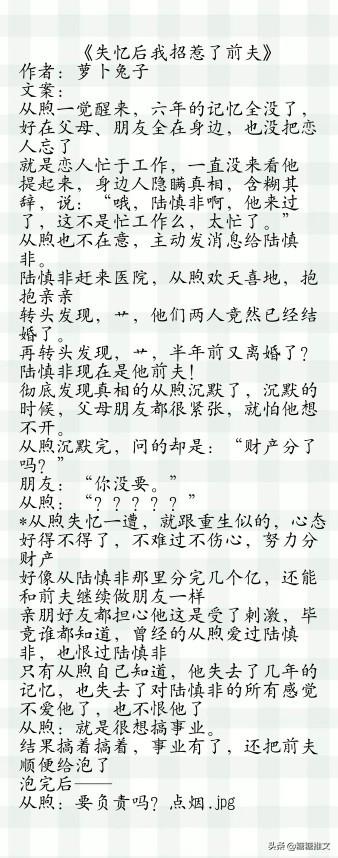 《失忆后我招惹了前夫》
作者：萝卜兔子
文案：
从煦一觉醒来，六年的记忆全没了，
好在父母、朋友全在身边，也没把恋
人忘了
就是恋人忙于工作，一直没来看他
提起来，身边人隐瞒真相，含糊其
辞，说：“哦，陆慎非啊，他来过
了，这不是忙工作么，太忙了。”
从煦也不在意，主动发消息给陆慎
非。
陆慎非赶来医院，从煦欢天喜地，抱
抱亲亲
转头发现，艹，他们两人竟然已经结
婚了。
再转头发现，艹，半年前又离婚了？
陆慎非现在是他前夫！
彻底发现真相的从煦沉默了，沉默的
时候，父母朋友都很紧张，就怕他想
不开。
从煦沉默完，问的却是：“财产分了
吗？”
朋友：“你没要。”
从煦：“？？？？？”
*从煦失忆一遭，就跟重生似的，心态
好得不得了，不难过不伤心，努力分
财产
好像从陆慎非那里分完几个亿，还能
和前夫继续做朋友一样
亲朋好友都担心他这是受了刺激，毕
竟谁都知道，曾经的从煦爱过陆慎
非，也恨过陆慎非
只有从煦自己知道，他失去了几年的
记忆，也失去了对陆慎非的所有感觉
不爱他了，也不恨他了
从煦：就是很想搞事业。
结果搞着搞着，事业有了，还把前夫
顺便给泡了
泡完后——
从煦：要负责吗？点烟.jpg
头条@糖糖推文